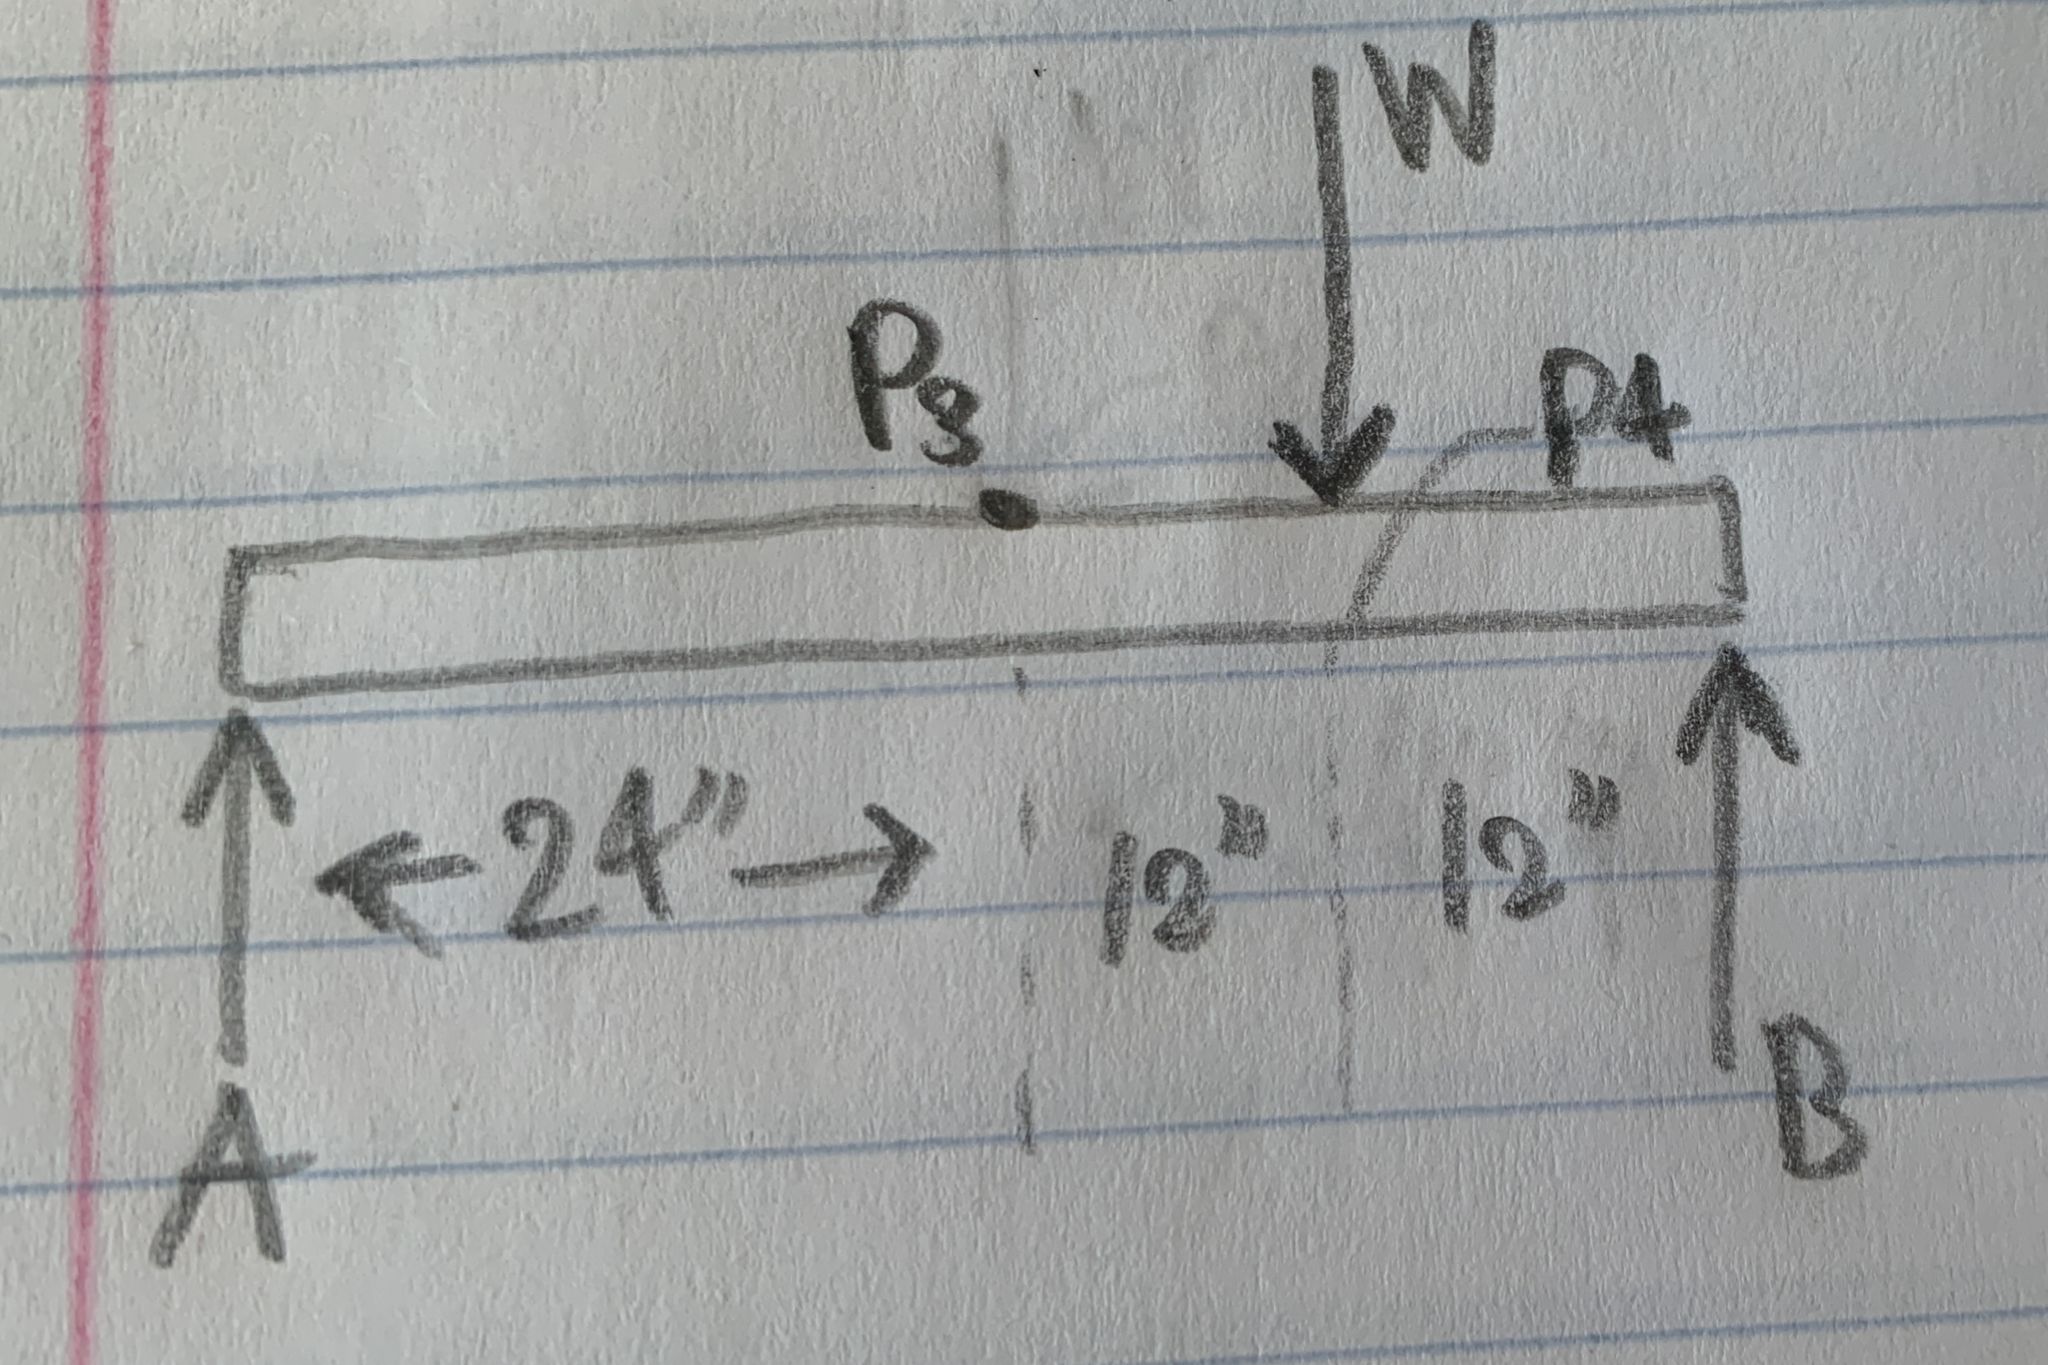 W
P3
P4
24" 12" 12"
A
B